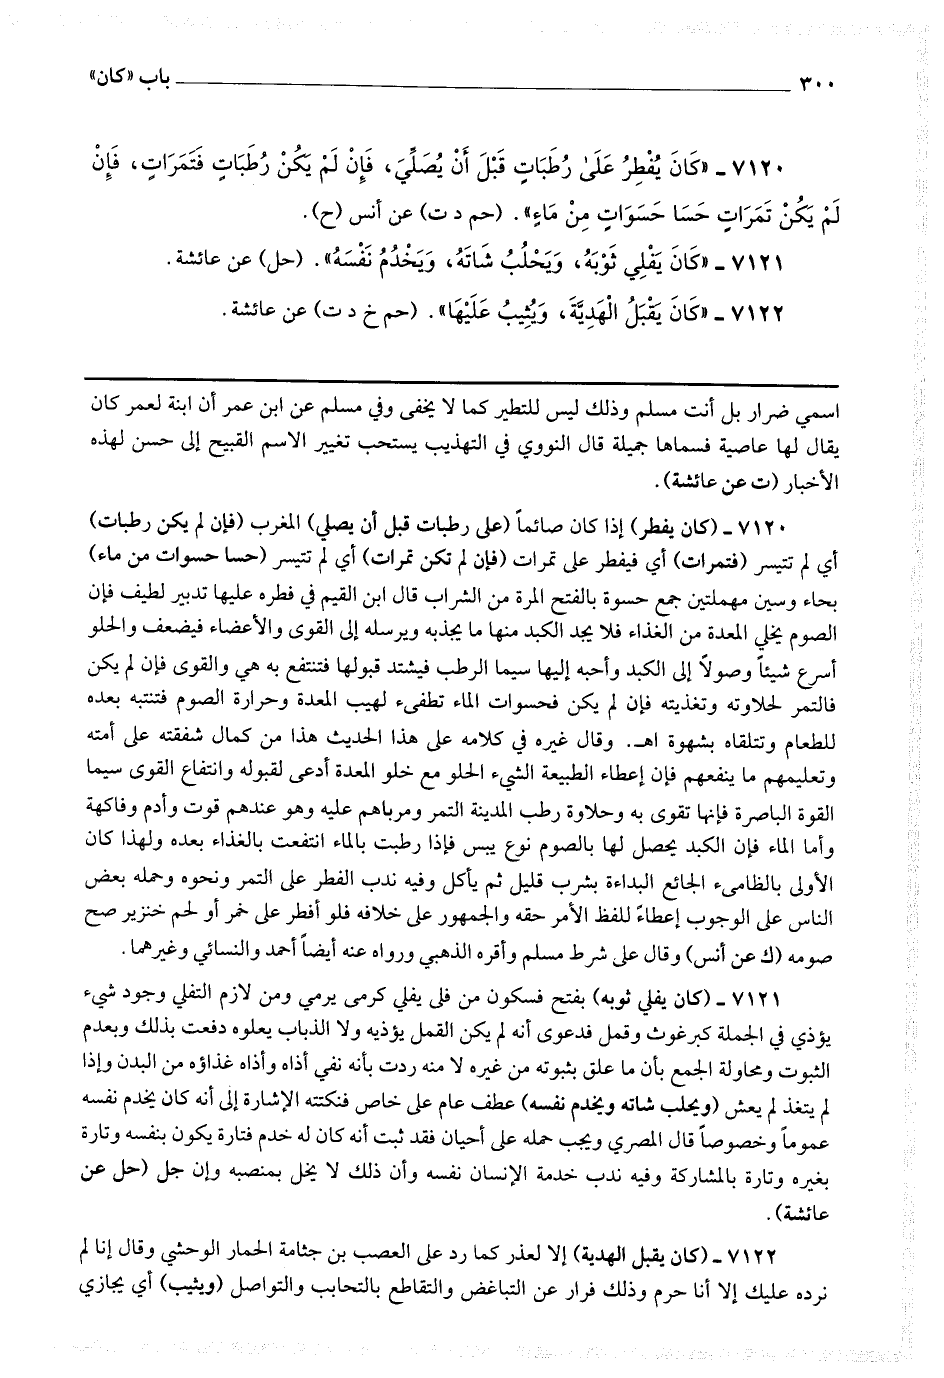 ٣٠٠ ـــــــ باب «كان»
٧١٢٠ ـ «كَانَ يُفْطِرُ عَلَىٰ رُطَبَاتٍ قَبْلَ أَنْ يُصَلِّيَ، فَإِنْ لَمْ يَكُنْ رُطَبَاتٍ فَتَمَرَاتٍ، فَإِنْ
لَمْ يَكُنْ تَمَرَاتٍ حَسَا حَسَوَاتٍ مِنْ مَاءٍ». (حم د ت) عن أنس (ح).
٧١٢١ ـ «كَانَ يَفْلِي ثَوْبَهُ، وَيَحْلُبُ شَاتَهُ، وَيَخْدُمُ نَفْسَهُ». (حل) عن عائشة.
٧١٢٢ ـ «كَانَ يَقْبَلُ الْهَدِيَّةَ، وَيُثِيبُ عَلَيْهَا». (حم خ د ت) عن عائشة.
اسمي ضرار بل أنت مسلم وذلك ليس للتطير كما لا يخفى وفي مسلم عن ابن عمر أن ابنة لعمر كان
يقال لها عاصية فسماها جميلة قال النووي في التهذيب يستحب تغيير الاسم القبيح إلى حسن لهذه
الأخبار (ت عن عائشة).
٧١٢٠ ـ (كان يفطر) إذا كان صائماً (على رطبات قبل أن يصلي) المغرب (فإن لم يكن رطبات)
أي لم تتيسر (فتمرات) أي فيفطر على تمرات (فإن لم تكن تمرات) أي لم تتيسر (حسا حسوات من ماء)
بحاء وسين مهملتين جمع حسوة بالفتح المرة من الشراب قال ابن القيم في فطره عليها تدبير لطيف فإن
الصوم يخلي المعدة من الغذاء فلا يجد الكبد منها ما يجذبه ويرسله إلى القوى والأعضاء فيضعف والحلو
أسرع شيئاً وصولاً إلى الكبد وأحبه إليها سيما الرطب فيشتد قبولها فتنتفع به هي والقوى فإن لم يكن
فالتمر لحلاوته وتغذيته فإن لم يكن فحسوات الماء تطفىء لهيب المعدة وحرارة الصوم فتنتبه بعده
للطعام وتتلقاه بشهوة اهـ. وقال غيره في كلامه على هذا الحديث هذا من كمال شفقته على أمته
وتعليمهم ما ينفعهم فإن إعطاء الطبيعة الشيء الحلو مع خلو المعدة أدعى لقبوله وانتفاع القوى سيما
القوة الباصرة فإنها تقوى به وحلاوة رطب المدينة التمر ومرباهم عليه وهو عندهم قوت وأدم وفاكهة
وأما الماء فإن الكبد يحصل لها بالصوم نوع يبس فإذا رطبت بالماء انتفعت بالغذاء بعده ولهذا كان
الأولى بالظامىء الجائع البداءة بشرب قليل ثم يأكل وفيه ندب الفطر على التمر ونحوه وحمله بعض
الناس على الوجوب إعطاءً للفظ الأمر حقه والجمهور على خلافه فلو أفطر على خمر أو لحم خنزير صح
صومه (ك عن أنس) وقال على شرط مسلم وأقره الذهبي ورواه عنه أيضاً أحمد والنسائي وغيرهما.
٧١٢١ ـ (كان يفلي ثوبه) بفتح فسكون من فلى يفلي كرمى يرمي ومن لازم التفلي وجود شيء
يؤذي في الجملة كبرغوث وقمل فدعوى أنه لم يكن القمل يؤذيه ولا الذباب يعلوه دفعت بذلك وبعدم
الثبوت ومحاولة الجمع بأن ما علق بثوبه من غيره لا منه ردت بأنه نفي أذاه وأذاه غذاؤه من البدن وإذا
لم يتغذ لم يعش (ويحلب شاته ويخدم نفسه) عطف عام على خاص فنكتته الإشارة إلى أنه كان يخدم نفسه
عموماً وخصوصاً قال المصري ويجب حمله على أحيان فقد ثبت أنه كان له خدم فتارة يكون بنفسه وتارة
بغيره وتارة بالمشاركة وفيه ندب خدمة الإنسان نفسه وأن ذلك لا يخل بمنصبه وإن جل (حل عن
عائشة).
٧١٢٢ ـ (كان يقبل الهدية) إلا لعذر كما رد على العصب بن جثامة الحمار الوحشي وقال إنا لم
نرده عليك إلا أنا حرم وذلك فرار عن التباغض والتقاطع بالتحابب والتواصل (ويثيب) أي يجازي